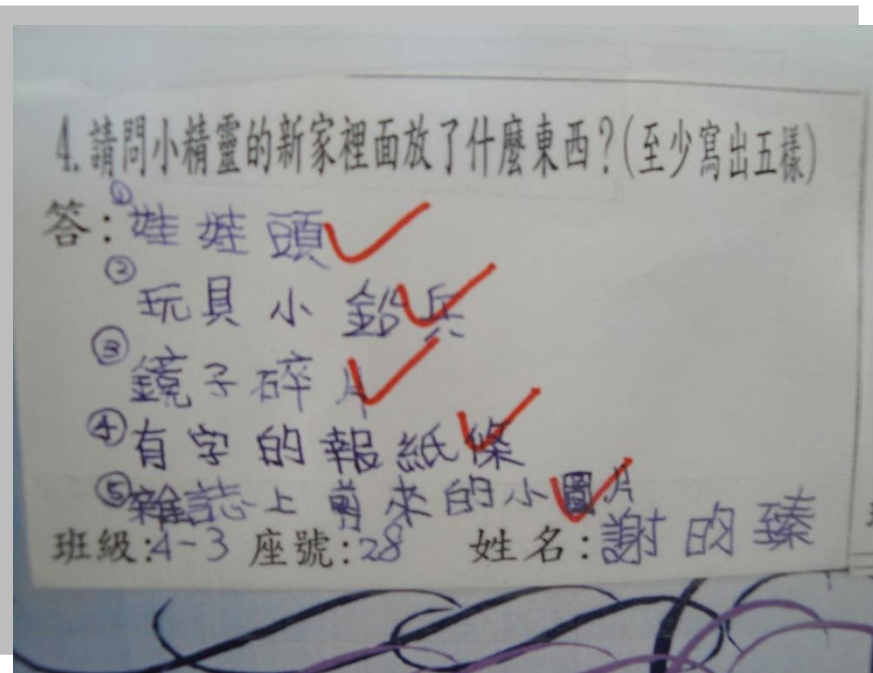 4.請問小精靈的新家裡面放了什麼東西?(至少寫出五樣)
答:①娃娃頭
②玩具小鉛兵
③鏡子碎片
④有字的報紙條
⑤雜誌上剪來的小圖片
班級:4-3 座號:28 姓名:謝昀臻